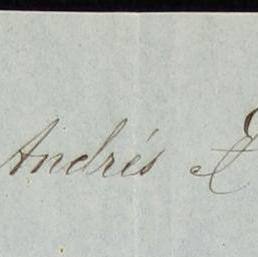 Andrés